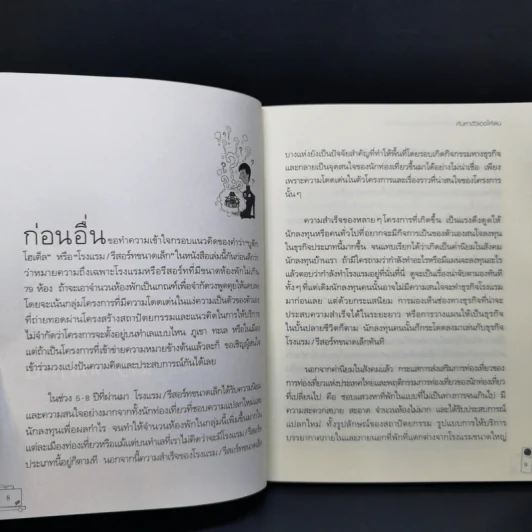 ก่อนอื่น ขอทำความเข้าใจกรอบแนวคิดของคำว่า"บูติก
โฮเต็ล" หรือ"โรงแรม/รีสอร์ทขนาดเล็ก"ในหนังสือเล่มนี้กันก่อนดีกว่า
ว่าหมายความถึงเฉพาะโรงแรมหรือรีสอร์ทที่มีขนาดห้องพักไม่เกิน
79 ห้อง ถ้าจะเอาจำนวนห้องพักเป็นเกณฑ์เพื่อจำกัดวงพูดคุยให้แคบลง
โดยจะเน้นกลุ่มโครงการที่มีความโดดเด่นในแง่ความเป็นตัวของตัวเอง
ที่ถ่ายทอดผ่านโครงสร้างสถาปัตยกรรมและแนวคิดในการให้บริการ
ไม่จำกัดว่าโครงการจะตั้งอยู่บนทำเลแบบไหน ภูเขา ทะเล หรือในเมือง
แต่ถ้าเป็นโครงการที่เข้าข่ายความหมายข้างต้นแล้วละก็ ขอเชิญผู้สนใจ
เข้าร่วมวงแบ่งปันความคิดและประสบการณ์กันได้เลย
ในช่วง 5-8 ปีที่ผ่านมา โรงแรม/รีสอร์ทขนาดเล็กได้รับความนิยม
และความสนใจอย่างมากจากทั้งนักท่องเที่ยวที่ชอบความแปลกใหม่และ
นักลงทุนเพื่อผลกำไร จนทำให้จำนวนห้องพักในกลุ่มนี้เพิ่มขึ้นมากใน
แต่ละเมืองท่องเที่ยวหรือแม้แต่บนทำเลที่เราไม่คิดว่าจะมีโรงแรม/รีสอร์ท
ประเภทนี้อยู่ก็ตามที นอกจากนี้ความสำเร็จของโรงแรม/รีสอร์ทขนาดเล็ก
8
ค้นหาตัวเองให้เจอ
บางแห่งยังเป็นปัจจัยสำคัญที่ทำให้พื้นที่โดยรอบเกิดกิจกรรมทางธุรกิจ
และกลายเป็นจุดสนใจของนักท่องเที่ยวขึ้นมาได้อย่างไม่น่าเชื่อ เพียง
เพราะความโดดเด่นในตัวโครงการและเรื่องราวที่น่าสนใจของโครงการ
นั้นๆ
ความสำเร็จของหลายๆ โครงการที่เกิดขึ้น เป็นแรงดึงดูดให้
นักลงทุนหรือคนทั่วไปที่อยากจะมีกิจการเป็นของตัวเองสนใจลงทุน
ในธุรกิจประเภทนี้มากขึ้น จนแทบเรียกได้ว่าเกิดเป็นค่านิยมในสังคม
นักลงทุนบ้านเรา ถ้ามีใครถามว่ากำลังทำอะไรหรือมีแผนจะลงทุนอะไร
แล้วตอบว่ากำลังทำโรงแรมอยู่ที่นั่นที่นี่ ดูจะเป็นเรื่องน่าจับตามองทันที
ทั้งๆ ที่แต่เดิมนักลงทุนคนนั้นอาจไม่มีความสนใจจะทำธุรกิจโรงแรม
มาก่อนเลย แต่ด้วยกระแสนิยม การมองเห็นช่องทางธุรกิจที่น่าจะ
ประสบความสำเร็จได้ในระยะยาว หรือการวางแผนให้เป็นธุรกิจ
ในบั้นปลายชีวิตก็ตาม นักลงทุนคนนั้นก็กระโดดลงมาเล่นกับธุรกิจ
โรงแรม/รีสอร์ทขนาดเล็กทันที
นอกจากค่านิยมในสังคมแล้ว กระแสการส่งเสริมการท่องเที่ยวของ
การท่องเที่ยวแห่งประเทศไทยและพฤติกรรมการท่องเที่ยวของนักท่องเที่ยว
ที่เปลี่ยนไป คือ ชอบแสวงหาที่พักในแบบที่ไม่เป็นทางการจนเกินไป มี
ความสะดวกสบาย สะอาด จำนวนห้องไม่มาก และได้รับประสบการณ์
แปลกใหม่ ทั้งรูปลักษณ์ของสถาปัตยกรรม รูปแบบการให้บริการ
บรรยากาศภายในและภายนอกที่พักที่แตกต่างจากโรงแรมขนาดใหญ่